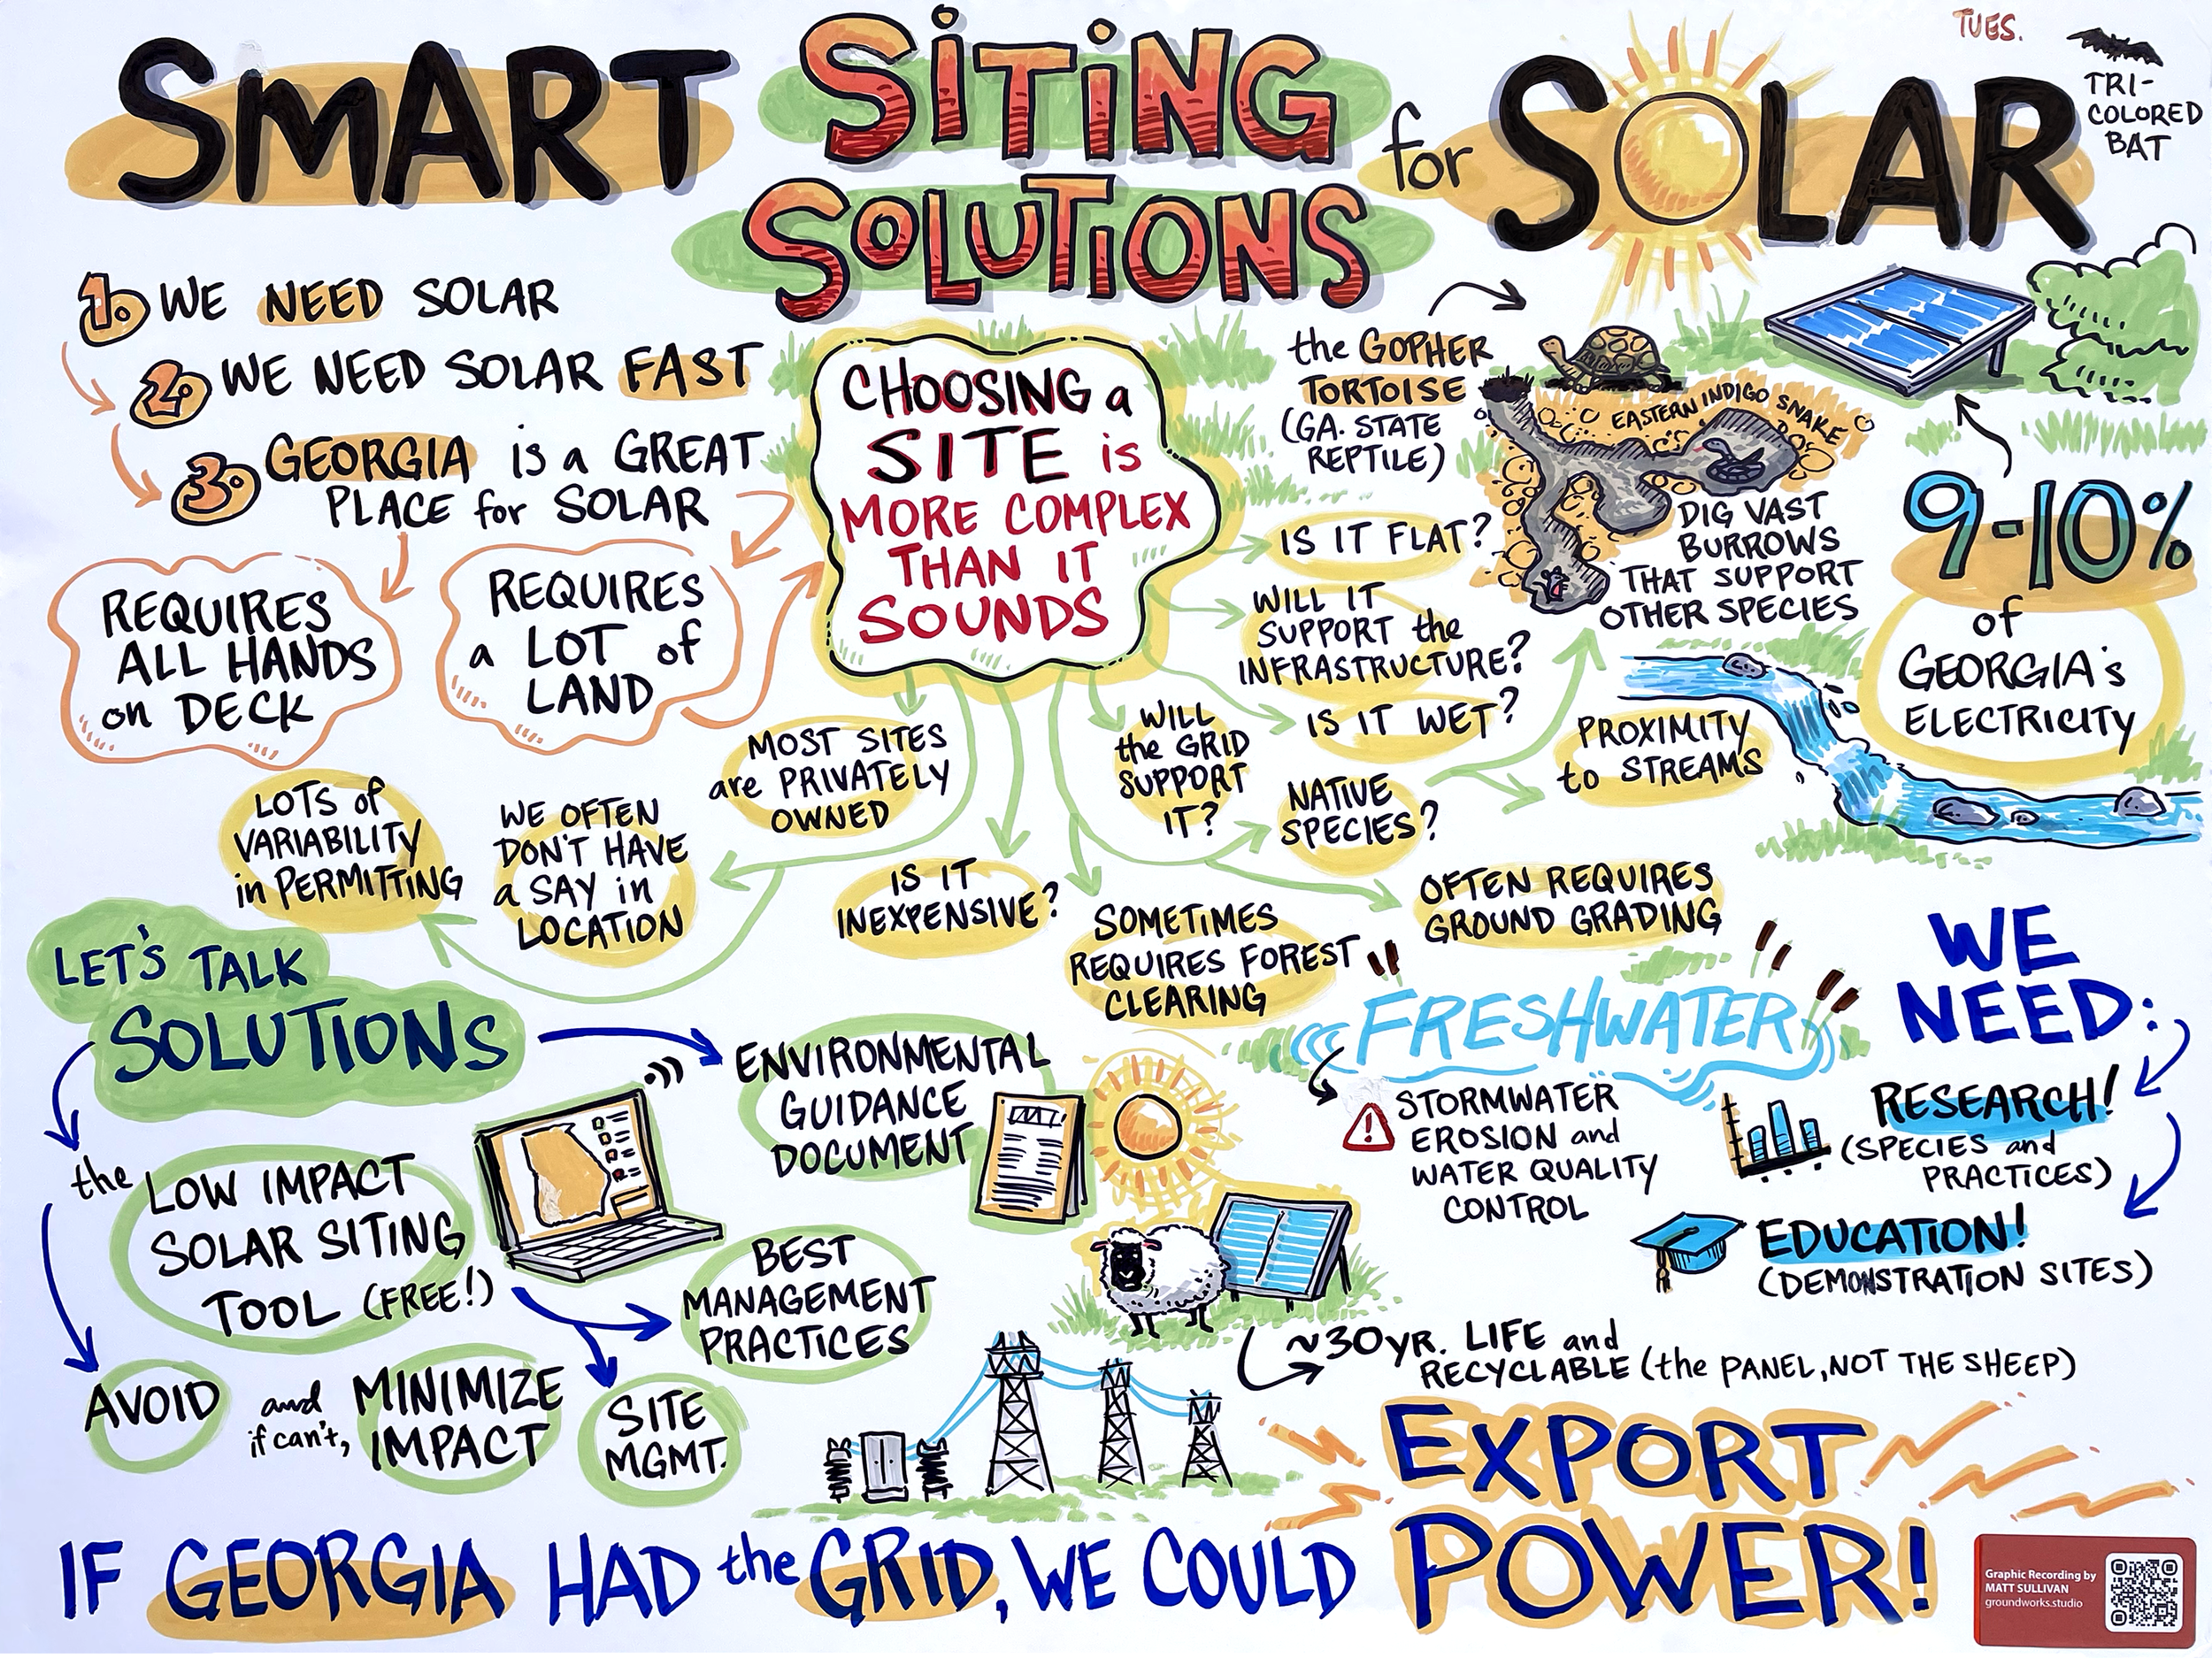 SMART
SITING
SOLUTIONS
for SOLAR
TUES.
TRI-
COLORED
BAT
1. WE NEED SOLAR
2. WE NEED SOLAR FAST
3. GEORGIA is a GREAT
PLACE for SOLAR
REQUIRES
ALL HANDS
on DECK
REQUIRES
a LOT of
LAND
CHOOSING a
SITE is
MORE COMPLEX
THAN IT
SOUNDS
the GOPHER
TORTOISE
(GA. STATE
REPTILE)
EASTERN INDIGO SNAKE
DIG VAST
BURROWS
THAT SUPPORT
OTHER SPECIES
9-10%
of
GEORGIA's
ELECTRICITY
IS IT FLAT?
WILL IT
SUPPORT the
INFRASTRUCTURE?
IS IT WET?
WILL
the GRID
SUPPORT
IT?
NATIVE
SPECIES?
PROXIMITY
to STREAMS
MOST SITES
are PRIVATELY
OWNED
WE OFTEN
DON'T HAVE
a SAY in
LOCATION
LOTS of
VARIABILITY
in PERMITTING
IS IT
INEXPENSIVE?
SOMETIMES
REQUIRES FOREST
CLEARING
OFTEN REQUIRES
GROUND GRADING
LET'S TALK
SOLUTIONS
the LOW IMPACT
SOLAR SITING
TOOL (FREE!)
AVOID and
if can't, MINIMIZE
IMPACT
ENVIRONMENTAL
GUIDANCE
DOCUMENT
BEST
MANAGEMENT
PRACTICES
SITE
MGMT.
FRESHWATER
STORMWATER
EROSION and
WATER QUALITY
CONTROL
WE
NEED:
RESEARCH!
(SPECIES and
PRACTICES)
EDUCATION!
(DEMONSTRATION SITES)
~30YR. LIFE and
RECYCLABLE (the PANEL, NOT THE SHEEP)
IF GEORGIA HAD the GRID, WE COULD
EXPORT
POWER!
Graphic Recording by
MATT SULLIVAN
groundworks.studio